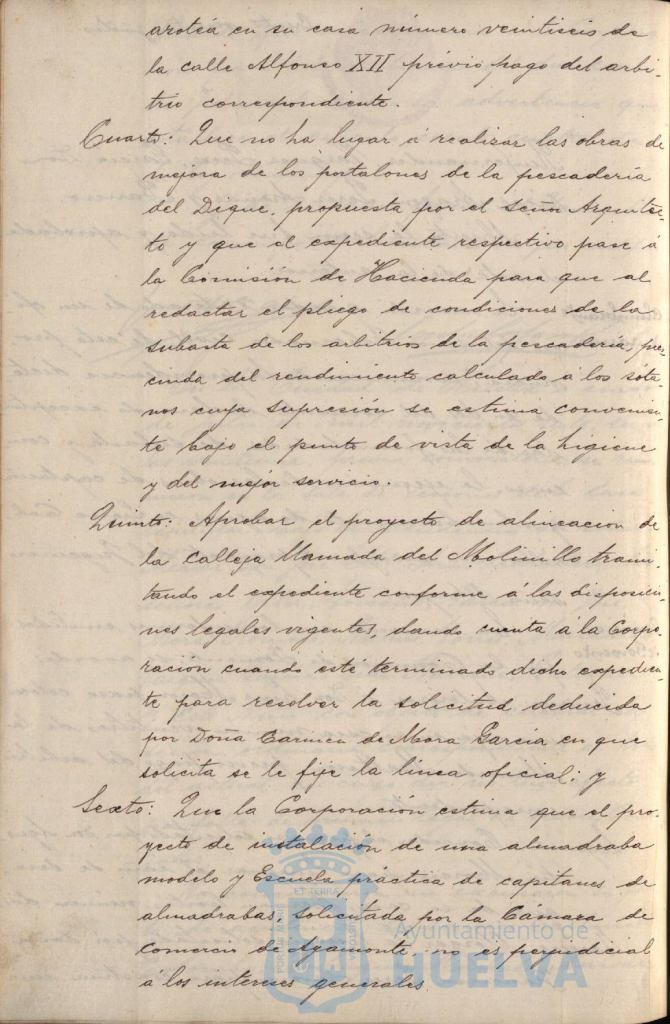 azotéa en su casa número veintiseis de
la calle Alfonso XII prévio pago del arbi
trio correspondiente.
Cuarto: Que no ha lugar á realizar las obras de
mejora de los portalones de la pescadería
del Dique, propuesta por el Señor Arquitec-
to y que el expediente respectivo pase á
la Comisión de Hacienda para que al
redactar el pliego de condiciones de la
subasta de los arbitrios de la pescadería, pres-
cinda del rendimiento calculado á los sóta-
nos cuya supresión se estima convenien-
te bajo el punto de vista de la higiene
y del mejor servicio.
Quinto: Aprobar el proyecto de alineacion de
la calleja llamada del Molinillo trami-
tando el expediente conforme á las disposicio-
nes legales vigentes, dando cuenta á la Corpo-
ración cuando esté terminado dicho expedien-
te para resolver la solicitud deducida
por Doña Carmen de Mora García en que
solicita se le fije la línea oficial; y
Sexto: Que la Corporación estima que el pro-
yecto de instalación de una almadraba
modelo y Escuela práctica de capitanes de
almadrabas, solicitada por la Cámara de
comercio de Ayamonte no es perjudicial
á los intereses generales.
Ayuntamiento de
HUELVA